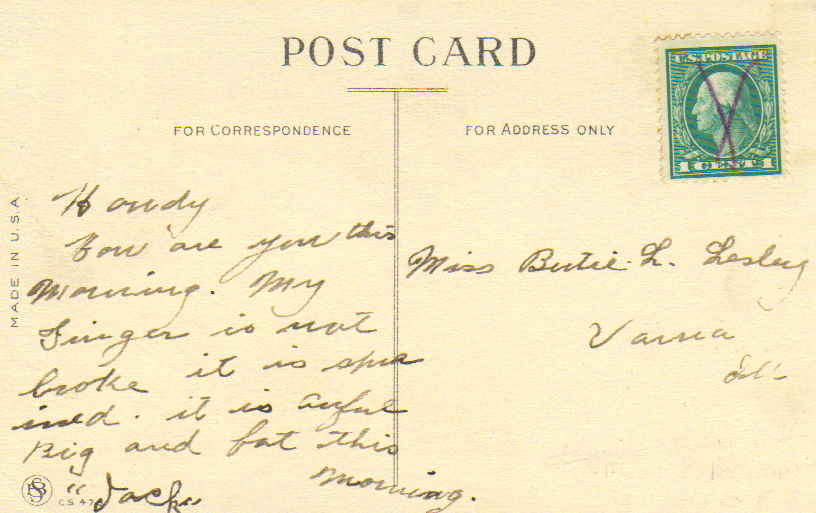 POST CARD
FOR CORRESPONDENCE
FOR ADDRESS ONLY
U.S. POSTAGE
1 CENT 1
MADE IN U.S.A.
Howdy
How are you this
Morning. My
Finger is not
broke it is spra
ined. it is awful
Big and fat this
Morning.
"Jack"
Miss Butie L. Lesley
Varna
Ill
CS 47